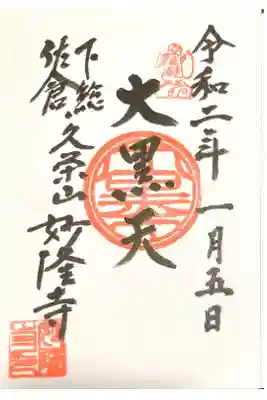 令和二年 一月五日
大黒天
下総
佐倉 久栄山 妙隆寺